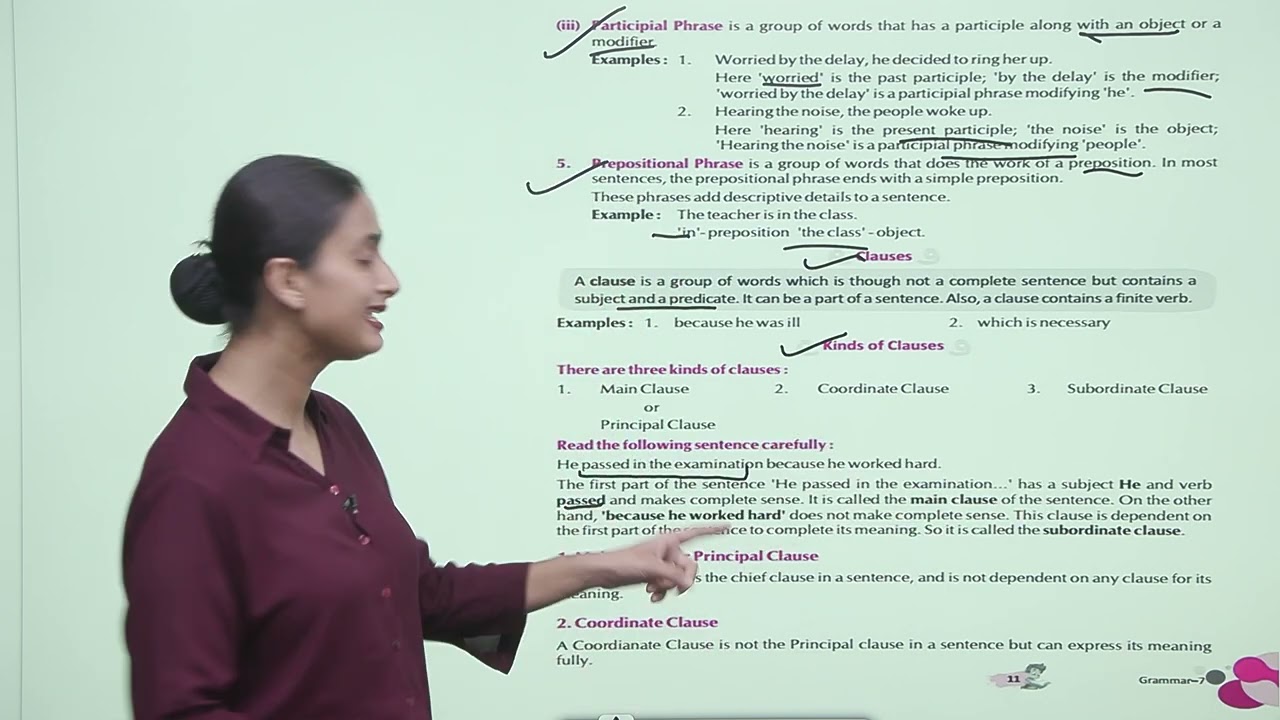 (iii) Participial Phrase is a group of words that has a participle along with an object or a
modifier.
Examples : 1. Worried by the delay, he decided to ring her up.
Here 'worried' is the past participle; 'by the delay' is the modifier;
'worried by the delay' is a participial phrase modifying 'he'.
2. Hearing the noise, the people woke up.
Here 'hearing' is the present participle; 'the noise' is the object;
'Hearing the noise' is a participial phrase modifying 'people'.
5. Prepositional Phrase is a group of words that does the work of a preposition. In most
sentences, the prepositional phrase ends with a simple preposition.
These phrases add descriptive details to a sentence.
Example : The teacher is in the class.
'in'- preposition 'the class' - object.
Clauses
A clause is a group of words which is though not a complete sentence but contains a
subject and a predicate. It can be a part of a sentence. Also, a clause contains a finite verb.
Examples : 1. because he was ill 2. which is necessary
Kinds of Clauses
There are three kinds of clauses :
1. Main Clause 2. Coordinate Clause 3. Subordinate Clause
or
Principal Clause
Read the following sentence carefully :
He passed in the examination because he worked hard.
The first part of the sentence 'He passed in the examination...' has a subject He and verb
passed and makes complete sense. It is called the main clause of the sentence. On the other
hand, 'because he worked hard' does not make complete sense. This clause is dependent on
the first part of the sentence to complete its meaning. So it is called the subordinate clause.
Principal Clause
the chief clause in a sentence, and is not dependent on any clause for its
meaning.
2. Coordinate Clause
A Coordianate Clause is not the Principal clause in a sentence but can express its meaning
fully.
11 Grammar–7